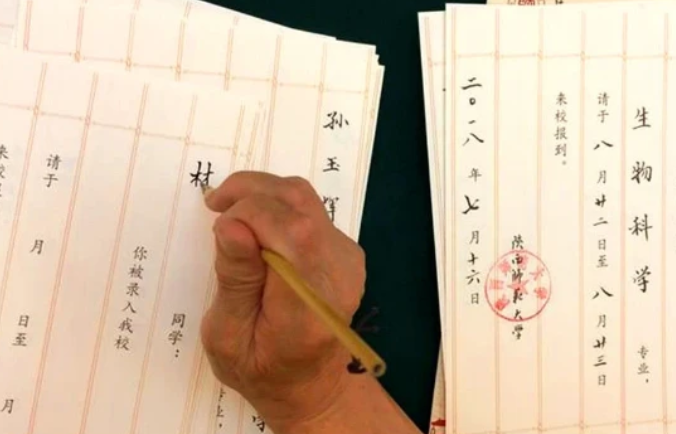 生物科学专业，
请于八月廿二日至八月廿三日
来校报到。
陕西师范大学
二〇一八年七月十六日
孙玉
同学：
你被录入我校
请于 月 日至 月
来校